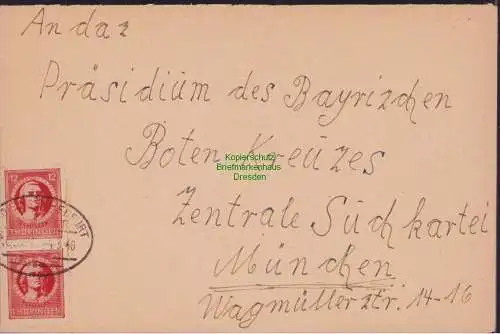 An daz
Präsidium des Bayrizchen
Boten Kreuzes
Zentrale Suchkartei
München
Wagmüllerztr. 14-16
Kopierschutz
Briefmarkenhaus
Dresden
12
THÜRINGEN
FURT
46
12
THÜRINGEN